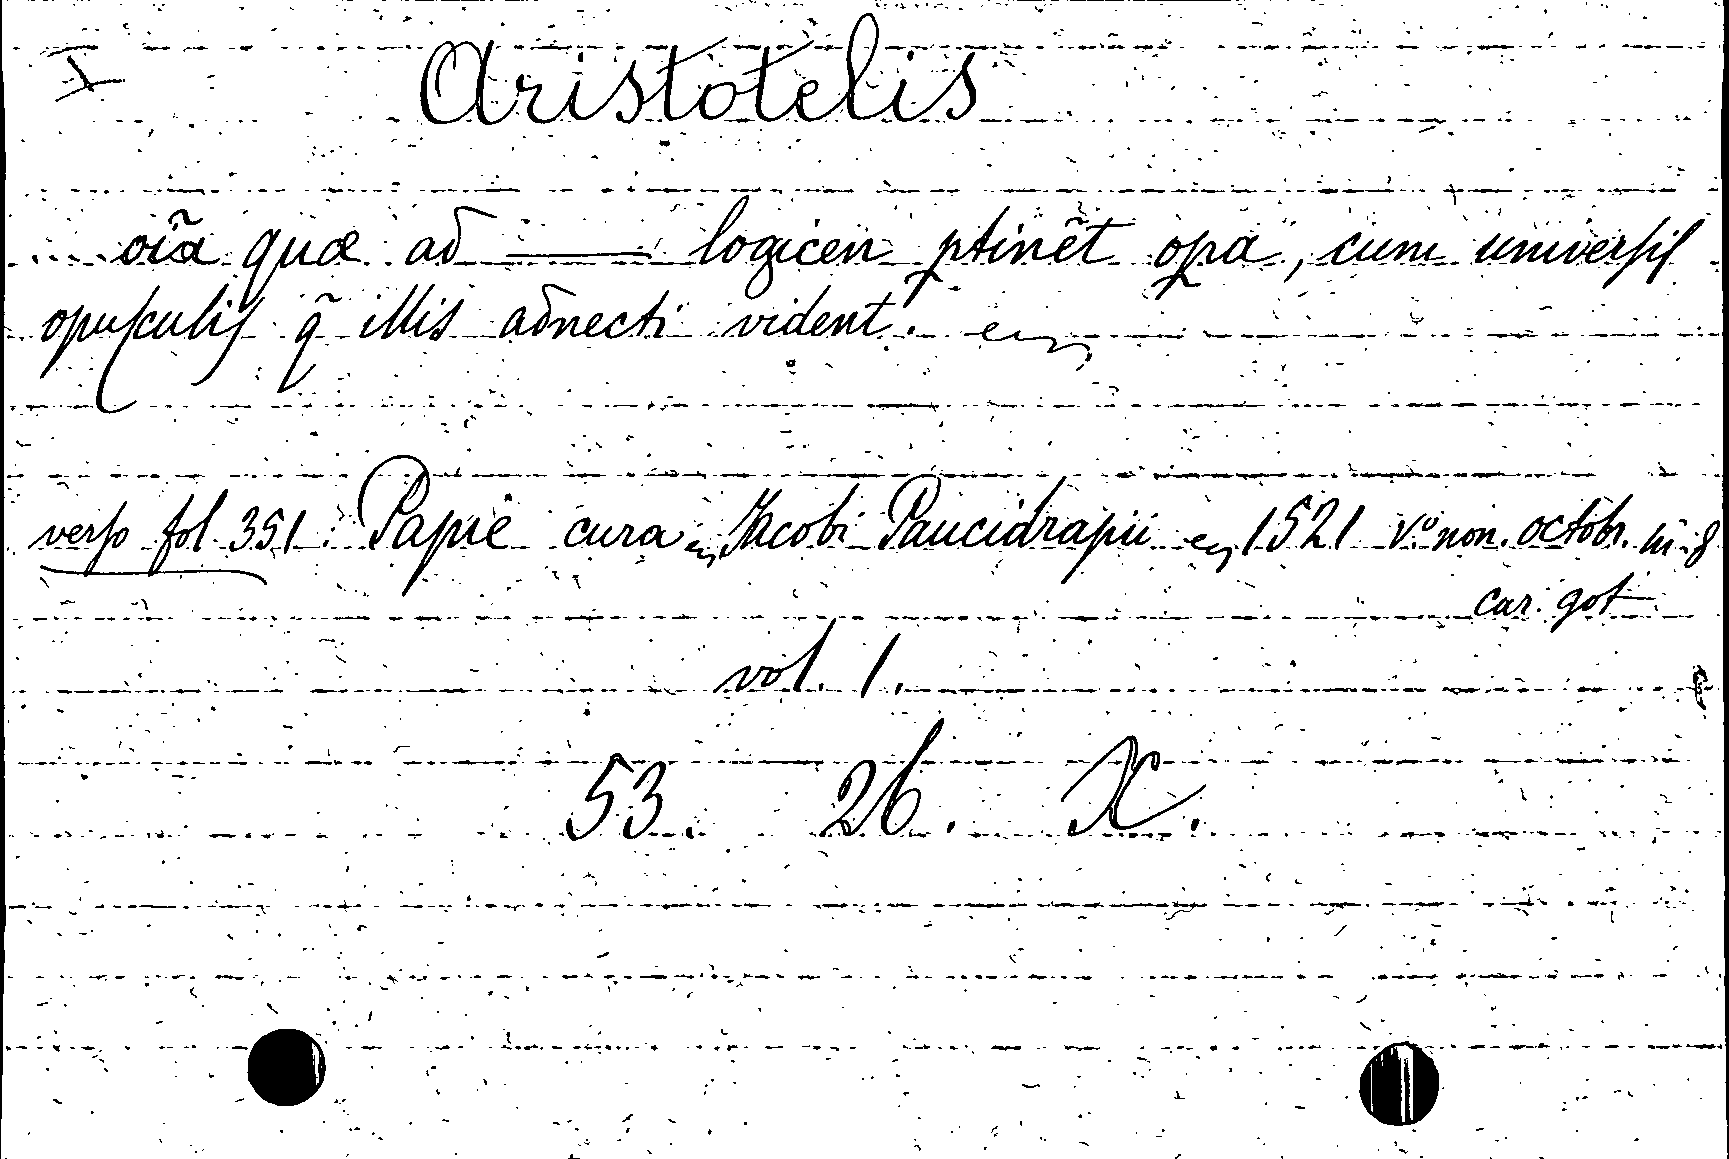 Aristotelis
oĩa quæ ad —— logicen ptinẽt opa, cum universiſ
opuſculiſ q̃ illis adnecti vident.
verſo fol. 351: Papiẽ cura Jacobi Paucidrapii 1521 V° non. octobr. in-8
car. got.
vol. 1.
53. 26. X.